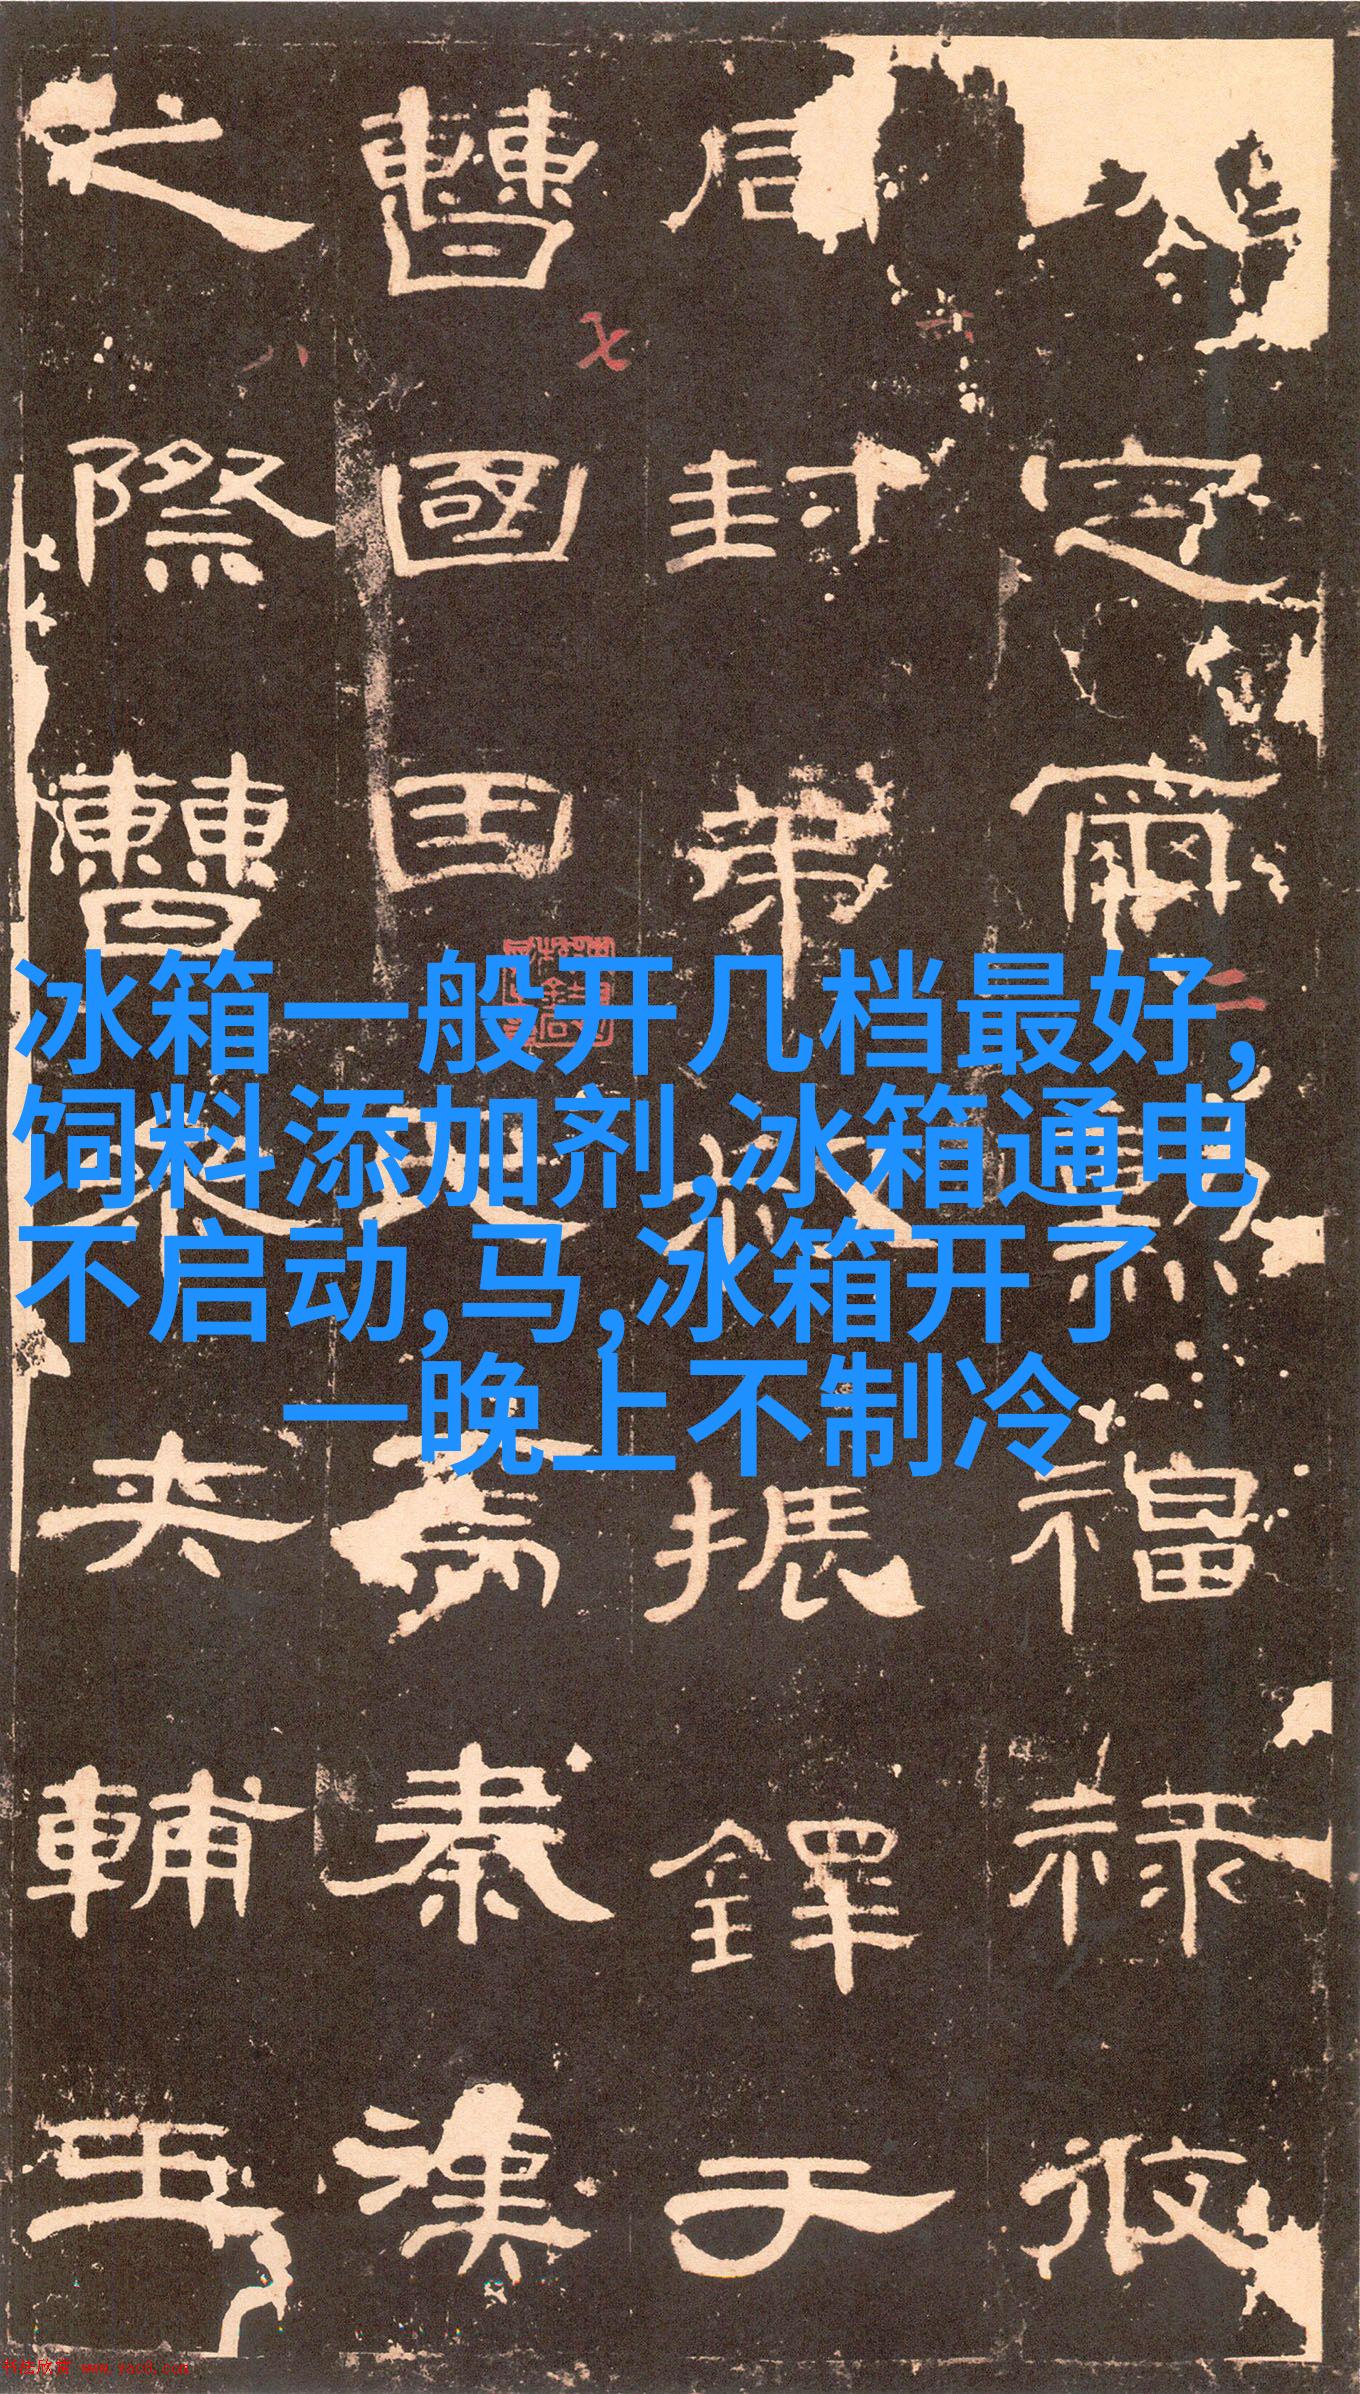 冰箱一般开几档最好,
饲料添加剂,冰箱通电
不启动,马,冰箱开了
一晚上不制冷
定爾勳福祿攸
封弟叔振鐸于
曹國因氏焉秦漢
之際曹參夾輔王
书法欣赏 www.yac8.com